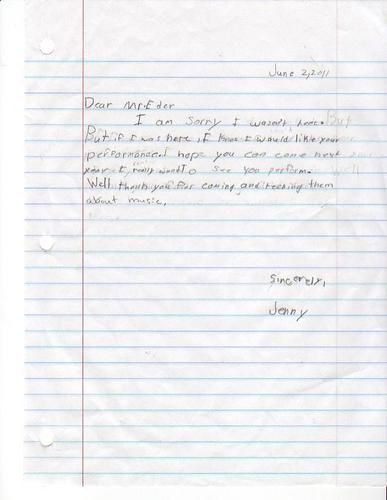 June 2, 2011
Dear Mr. Eder
I am sorry I wasn't here. But
But if I was here, I know I would like your
performance. I hope you can come next
year. I really want to see you perform.
Well thank you for coming and teaching them
about music.
Sincerely,
Jenny